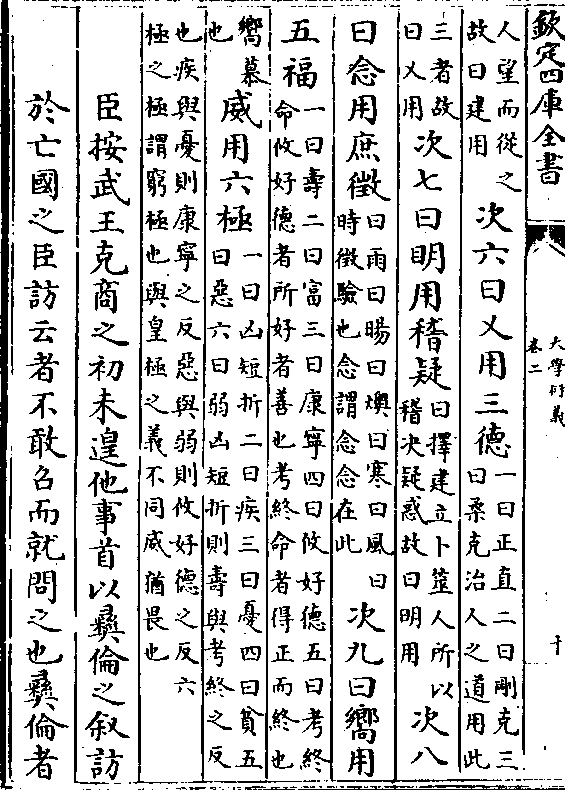 欽定四庫全書
大學衍義
卷二
十
人望而從之
故曰建用
次六曰乂用三德
一曰正直二曰剛克三
曰柔克治人之道用此
三者故
曰乂用
次七曰明用稽疑
曰擇建立卜筮人所以
稽决疑惑故曰明用
次八
曰念用庶徵
曰雨曰暘曰燠曰寒曰風曰
時徵驗也念謂念念在此
次九曰嚮用
五福
一曰壽二曰富三曰康寧四曰攸好德五曰考終
命攸好德者所好者善也考終命者得正而終也
嚮慕
也
威用六極
一曰凶短折二曰疾三曰憂四曰貧五
曰惡六曰弱凶短折則壽與考終之反
也疾與憂則康寧之反惡與弱則攸好德之反六
極之極謂窮極也與皇極之義不同威猶畏也
臣按武王克商之初未遑他事首以彞倫之叙訪
於亡國之臣訪云者不敢召而就問之也彞倫者